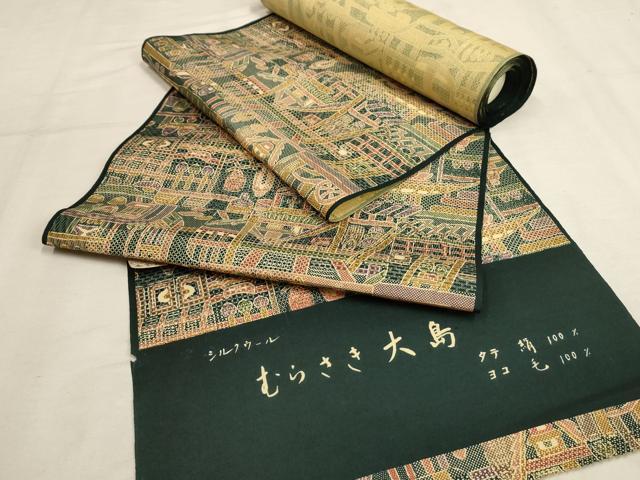 シルクウール
むらさき大島
タテ 絹 100%
ヨコ 毛 100%